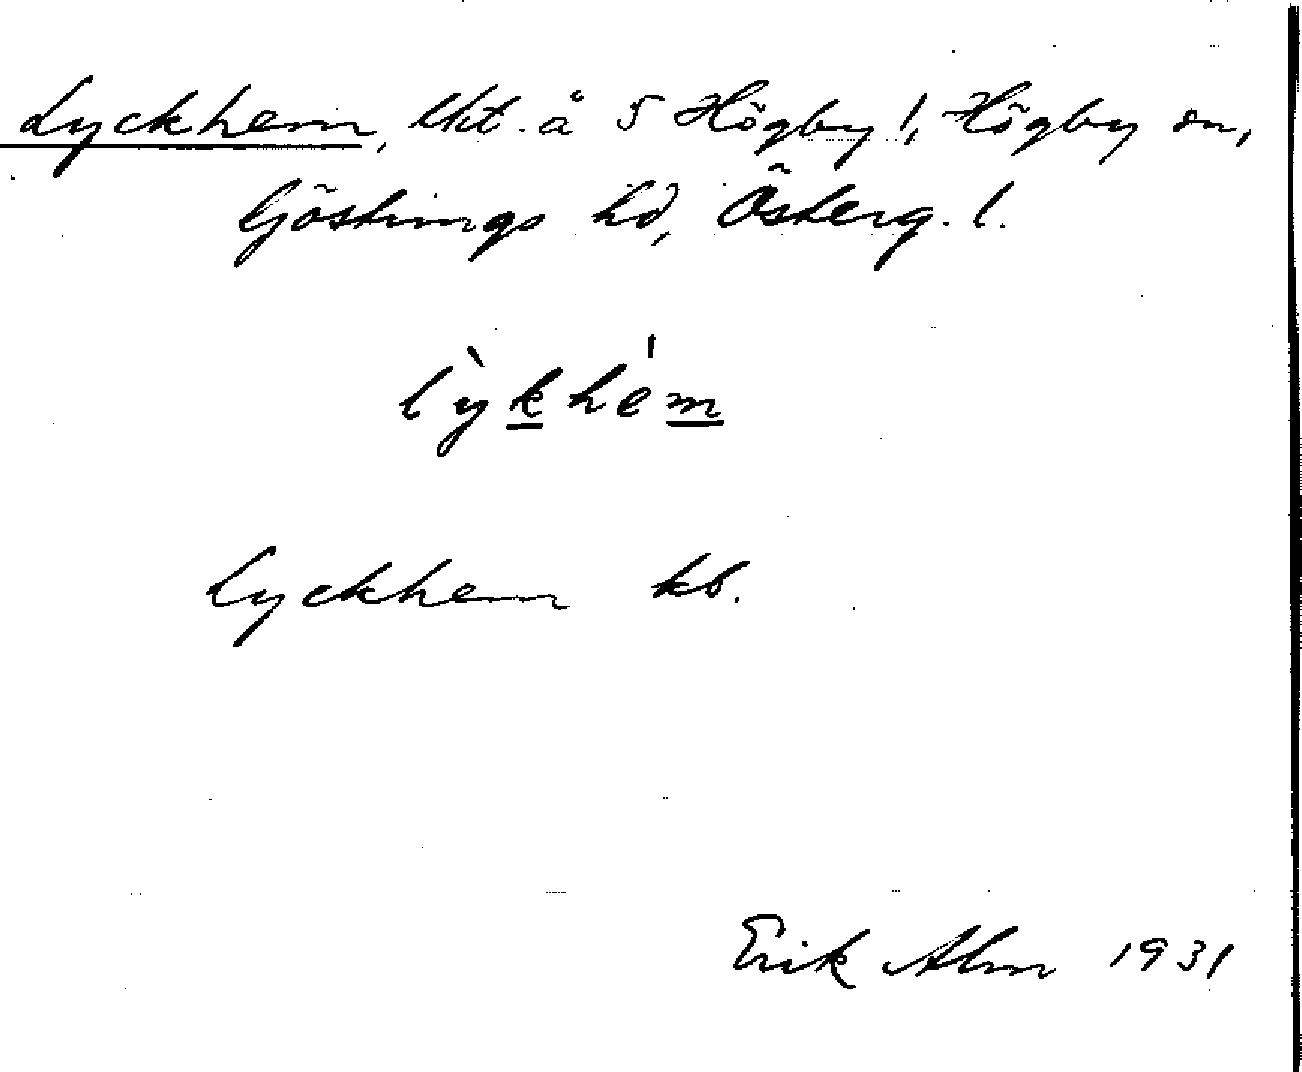 Lyckhem, lht. å 5 Högby !, Högby sn,
Göstrings hd, Österg. l.
lỳkhém
Lyckhem kb.
Erik Alm 1931